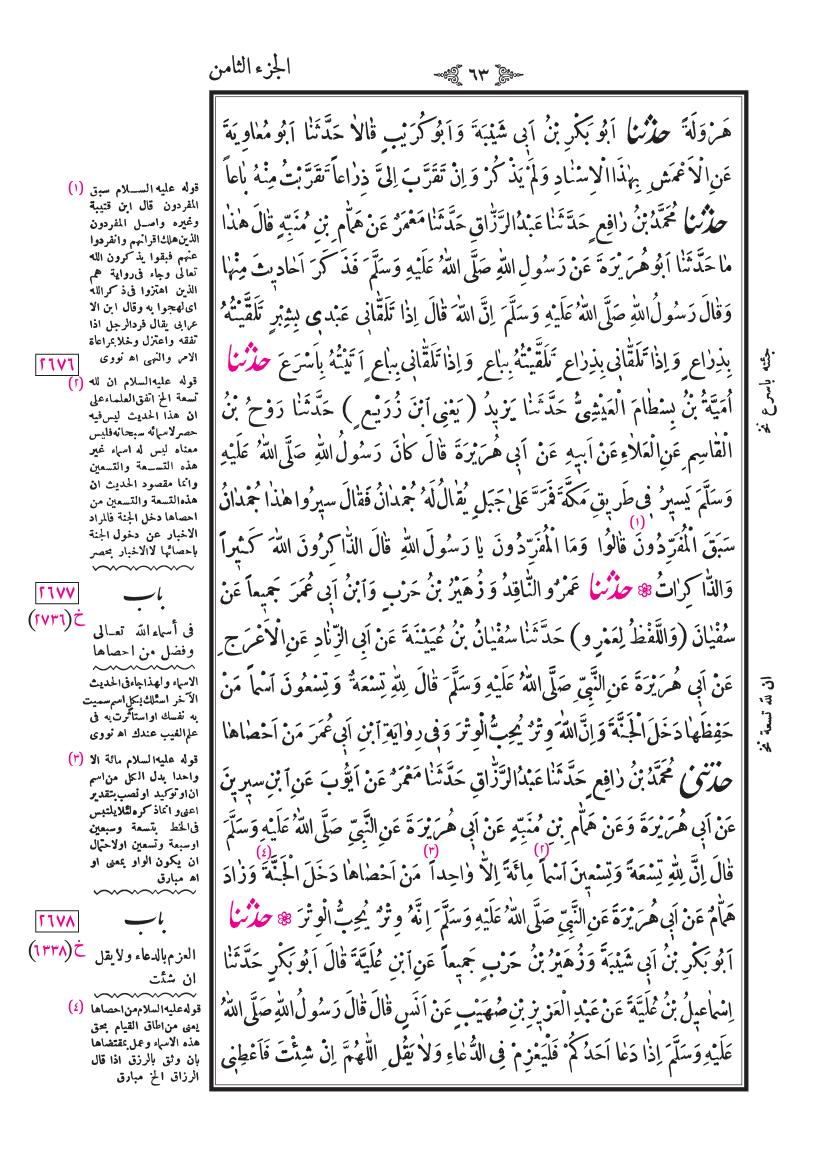 الجزء الثامن
٦٣
هَرْوَلَةً حَدَّثَنَا اَبُو بَكْرِ بْنُ اَبِى شَيْبَةَ وَاَبُو كُرَيْبٍ قَالَا حَدَّثَنَا اَبُو مُعَاوِيَةَ
عَنِ الْاَعْمَشِ بِهٰذَا الْاِسْنَادِ وَلَمْ يَذْكُرْ وَاِنْ تَقَرَّبَ اِلَىَّ ذِرَاعاً تَقَرَّبْتُ مِنْهُ بَاعاً
حَدَّثَنَا مُحَمَّدُ بْنُ رَافِعٍ حَدَّثَنَا عَبْدُ الرَّزَّاقِ حَدَّثَنَا مَعْمَرٌ عَنْ هَمَّامِ بْنِ مُنَبِّهٍ قَالَ هٰذَا
مَا حَدَّثَنَا اَبُو هُرَيْرَةَ عَنْ رَسُولِ اللهِ صَلَّى اللهُ عَلَيْهِ وَسَلَّمَ فَذَكَرَ اَحَادِيثَ مِنْهَا
وَقَالَ رَسُولُ اللهِ صَلَّى اللهُ عَلَيْهِ وَسَلَّمَ اِنَّ اللهَ قَالَ اِذَا تَلَقَّانِى عَبْدِى بِشِبْرٍ تَلَقَّيْتُهُ
بِذِرَاعٍ وَاِذَا تَلَقَّانِى بِذِرَاعٍ تَلَقَّيْتُهُ بِبَاعٍ وَاِذَا تَلَقَّانِى بِبَاعٍ اَتَيْتُهُ بِاَسْرَعَ حَدَّثَنَا
اُمَيَّةُ بْنُ بِسْطَامَ الْعَيْشِىُّ حَدَّثَنَا يَزِيدُ (يَعْنِى ابْنَ زُرَيْعٍ) حَدَّثَنَا رَوْحُ بْنُ
الْقَاسِمِ عَنِ الْعَلَاءِ عَنْ اَبِيهِ عَنْ اَبِى هُرَيْرَةَ قَالَ كَانَ رَسُولُ اللهِ صَلَّى اللهُ عَلَيْهِ
وَسَلَّمَ يَسِيرُ فِى طَرِيقِ مَكَّةَ فَمَرَّ عَلَىٰ جَبَلٍ يُقَالُ لَهُ جُمْدَانُ فَقَالَ سِيرُوا هٰذَا جُمْدَانُ
سَبَقَ الْمُفَرِّدُونَ (١) قَالُوا وَمَا الْمُفَرِّدُونَ يَا رَسُولَ اللهِ قَالَ الذَّاكِرُونَ اللهَ كَثِيراً
وَالذَّاكِرَاتُ ۞ حَدَّثَنَا عَمْرٌو النَّاقِدُ وَزُهَيْرُ بْنُ حَرْبٍ وَابْنُ اَبِى عُمَرَ جَمِيعاً عَنْ
سُفْيَانَ (وَاللَّفْظُ لِعَمْرٍو) حَدَّثَنَا سُفْيَانُ بْنُ عُيَيْنَةَ عَنْ اَبِى الزِّنَادِ عَنِ الْاَعْرَجِ
عَنْ اَبِى هُرَيْرَةَ عَنِ النَّبِىِّ صَلَّى اللهُ عَلَيْهِ وَسَلَّمَ قَالَ لِلّٰهِ تِسْعَةٌ وَتِسْعُونَ اسْماً مَنْ
حَفِظَهَا دَخَلَ الْجَنَّةَ وَاِنَّ اللهَ وِتْرٌ يُحِبُّ الْوِتْرَ وَفِى رِوَايَةِ ابْنِ اَبِى عُمَرَ مَنْ اَحْصَاهَا
حَدَّثَنِى مُحَمَّدُ بْنُ رَافِعٍ حَدَّثَنَا عَبْدُ الرَّزَّاقِ حَدَّثَنَا مَعْمَرٌ عَنْ اَيُّوبَ عَنِ ابْنِ سِيرِينَ
عَنْ اَبِى هُرَيْرَةَ وَعَنْ هَمَّامِ بْنِ مُنَبِّهٍ عَنْ اَبِى هُرَيْرَةَ عَنِ النَّبِىِّ صَلَّى اللهُ عَلَيْهِ وَسَلَّمَ
قَالَ اِنَّ لِلّٰهِ تِسْعَةً وَتِسْعِينَ اسْماً (٢) مِائَةً اِلَّا وَاحِداً (٣) مَنْ اَحْصَاهَا دَخَلَ الْجَنَّةَ (٤) وَزَادَ
هَمَّامٌ عَنْ اَبِى هُرَيْرَةَ عَنِ النَّبِىِّ صَلَّى اللهُ عَلَيْهِ وَسَلَّمَ اِنَّهُ وِتْرٌ يُحِبُّ الْوِتْرَ ۞ حَدَّثَنَا
اَبُو بَكْرِ بْنُ اَبِى شَيْبَةَ وَزُهَيْرُ بْنُ حَرْبٍ جَمِيعاً عَنِ ابْنِ عُلَيَّةَ قَالَ اَبُو بَكْرٍ حَدَّثَنَا
اِسْمَاعِيلُ بْنُ عُلَيَّةَ عَنْ عَبْدِ الْعَزِيزِ بْنِ صُهَيْبٍ عَنْ اَنَسٍ قَالَ قَالَ رَسُولُ اللهِ صَلَّى اللهُ
عَلَيْهِ وَسَلَّمَ اِذَا دَعَا اَحَدُكُمْ فَلْيَعْزِمْ فِى الدُّعَاءِ وَلَا يَقُلِ اللّٰهُمَّ اِنْ شِئْتَ فَاَعْطِنِى
جئته باسرع نخ
ان لله تسعة نخ
(١) قوله عليه السلام سبق
المفردون قال ابن قتيبة
وغيره واصل المفردون
الذين هلك اقرانهم وانفردوا
عنهم فبقوا يذكرون الله
تعالى وجاء فى رواية هم
الذين اهتزوا فى ذكر الله
اى لهجوا به وقال ابن الا
عرابى يقال فرد الرجل اذا
تفقه واعتزل وخلا بمراعاة
الامر والنهى اه نووى
٢٦٧٦
(٢) قوله عليه السلام ان لله
تسعة الخ اتفق العلماء على
ان هذا الحديث ليس فيه
حصر لاسمائه سبحانه فليس
معناه ليس له اسماء غير
هذه التسعة والتسعين
وانما مقصود الحديث ان
هذه التسعة والتسعين من
احصاها دخل الجنة فالمراد
الاخبار عن دخول الجنة
باحصائها لا الاخبار بحصر
٢٦٧٧
خ(٢٧٣٦)
باب
فى أسماء الله تعالى
وفضل من احصاها
الاسماء ولهذا جاء فى الحديث
الآخر اسئلك بكل اسم سميت
به نفسك او استأثرت به فى
علم الغيب عندك اه نووى
(٣) قوله عليه السلام مائة الا
واحدا بدل الكل من اسم
ان او توكيد او نصب بتقدير
اعنى وانما ذكره لئلا يلتبس
فى الخط بتسعة وسبعين
او سبعة وتسعين او لاحتمال
ان يكون الواو بمعنى او
اه مبارق
٢٦٧٨
خ(٦٣٣٨)
باب
العزم بالدعاء ولا يقل
ان شئت
(٤) قوله عليه السلام من احصاها
يعنى من اطاق القيام بحق
هذه الاسماء وعمل بمقتضاها
بان وثق بالرزق اذا قال
الرزاق الخ مبارق